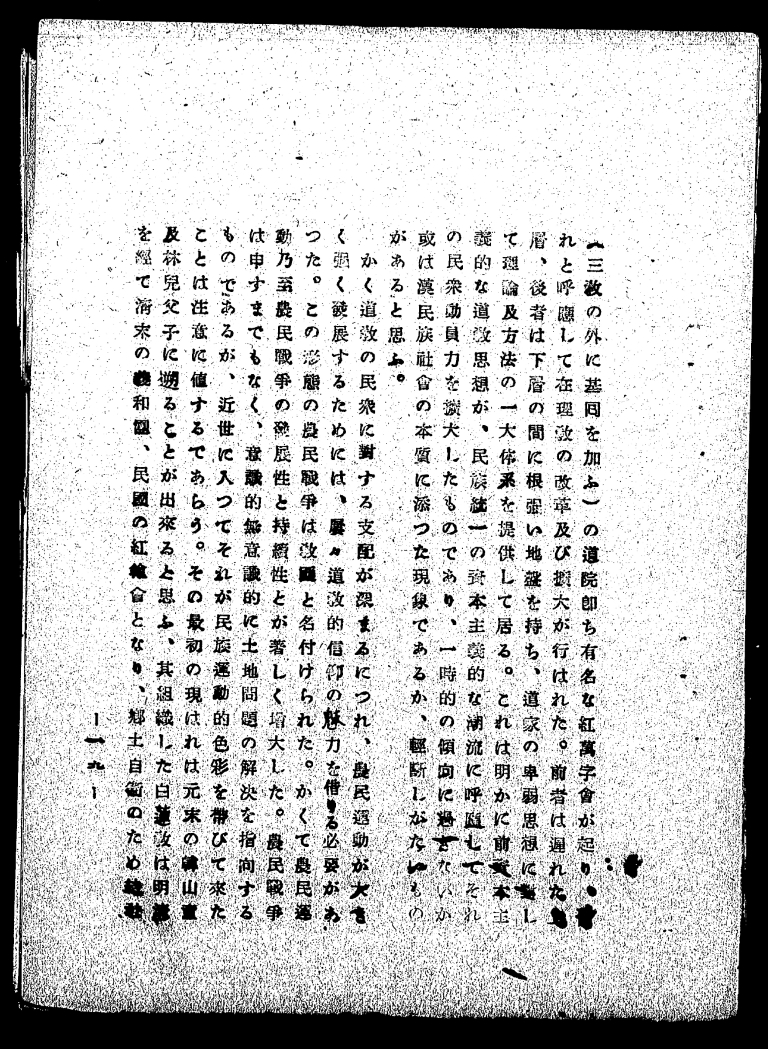 (三敎の外に基囘を加ふ)の道院卽ち有名な紅萬字會が起り、
れと呼應して在理敎の改革及び擴大が行はれた。前者は遲れた
層、後者は下層の間に根强い地盤を持ち、道家の卑弱思想に し
て理論及方法の一大体系を提供して居る。これは明かに前資本主
義的な道敎思想が、民族統一の資本主義的な潮流に呼應してそれ
の民衆動員力を擴大したものであり、一時的の傾向に過ぎないか
或は漢民族社會の本質に添つた現象であるか、輕斷しがたいもの
があると思ふ。
かく道敎の民衆に對する支配が深まるにつれ、農民運動が大き
く强く發展するためには、屢々道敎的信仰の魅力を借りる必要があ
つた。この形態の農民戰爭は敎匪と名付けられた。かくて農民運
動乃至農民戰爭の發展性と持續性とが著しく増大した。農民戰爭
は申すまでもなく、意識的無意識的に土地問題の解決を指向する
ものであるが、近世に入つてそれが民族運動的色彩を帶びて來た
ことは注意に値するであらう。その最初の現はれは元末の韓山童
及林兒父子に遡ることが出來ると思ふ、其組織した白蓮敎は明淸
を經て淸末の義和團、民國の紅槍會となり、鄕土自衞のため
—一九—